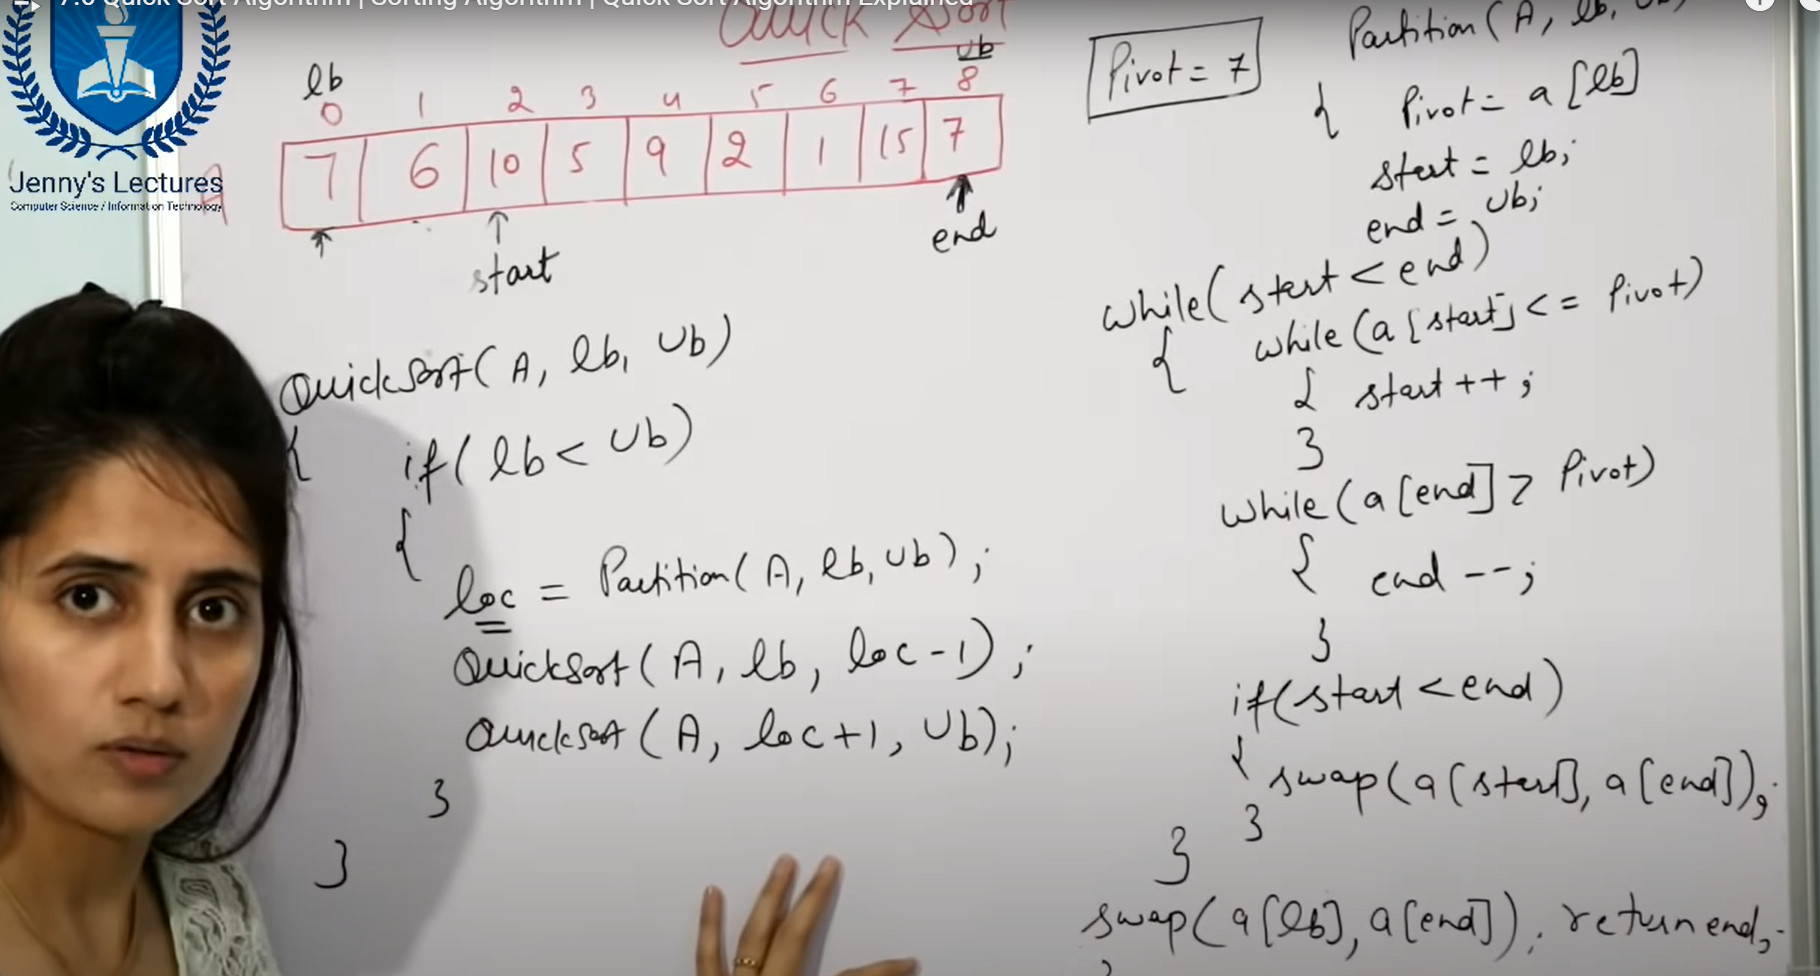 7.6 Quick Sort Algorithm | Sorting Algorithm | Quick Sort Algorithm Explained
Quick Sort
Jenny's Lectures
Computer Science / Information Technology
lb
ub
0 1 2 3 4 5 6 7 8
A
7 6 10 5 9 2 1 15 7
start
end
QuickSort(A, lb, ub)
{ if(lb < ub)
{
loc = Partition(A, lb, ub);
QuickSort(A, lb, loc-1);
QuickSort(A, loc+1, ub);
}
}
Pivot = 7
Partition(A, lb, ub)
{ Pivot = a[lb]
start = lb;
end = ub;
while(start < end)
{ while(a[start] <= Pivot)
{ start++;
}
while(a[end] > Pivot)
{ end--;
}
if(start < end)
{ swap(a[start], a[end]);
}
}
swap(a[lb], a[end]); return end;
}